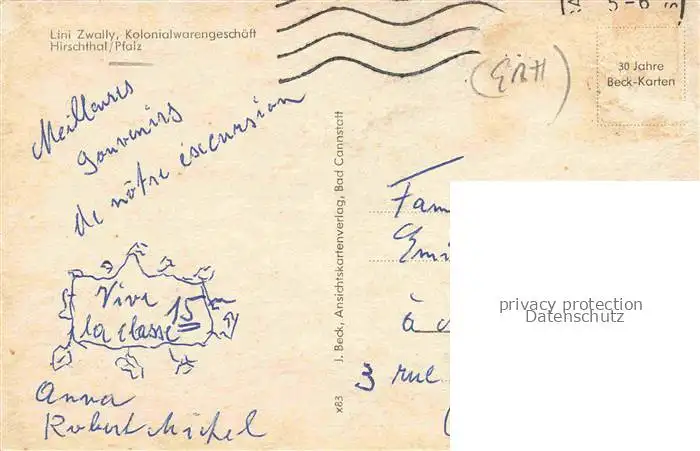 Lini Zwally, Kolonialwarengeschäft
Hirschthal/Pfalz
5-6
30 Jahre
Beck-Karten
Meilleures
Souvenirs
de nôtre excursion
Vive
la classe 15
Anna
Robert Michel
x83
J. Beck, Ansichtskartenverlag, Bad Cannstatt
Fam
Emi
à
3 rue
privacy protection
Datenschutz